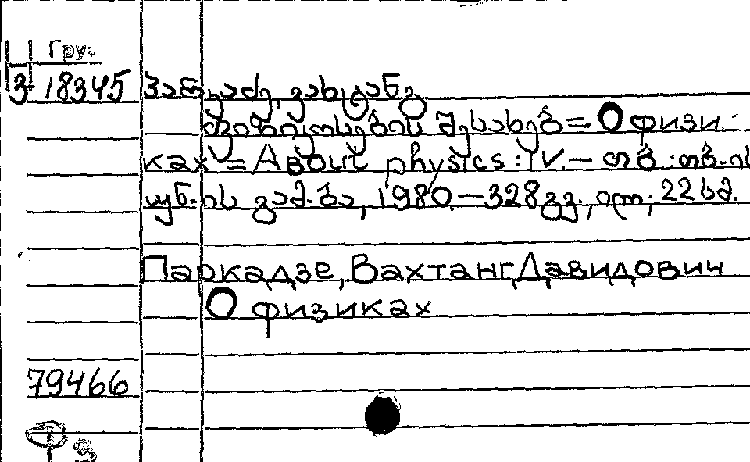 Гру.
З 18345 პარკაძე, ვახტანგ
ფიზიკოსების შესახებ = О физи-
ках = About physics: IV. — თბ.: თბ. ის
უნ. ის გამ-ბა, 1980. — 328 გვ., ილ.; 22 სმ.
Паркадзе, Вахтанг Давидович
О физиках
79466